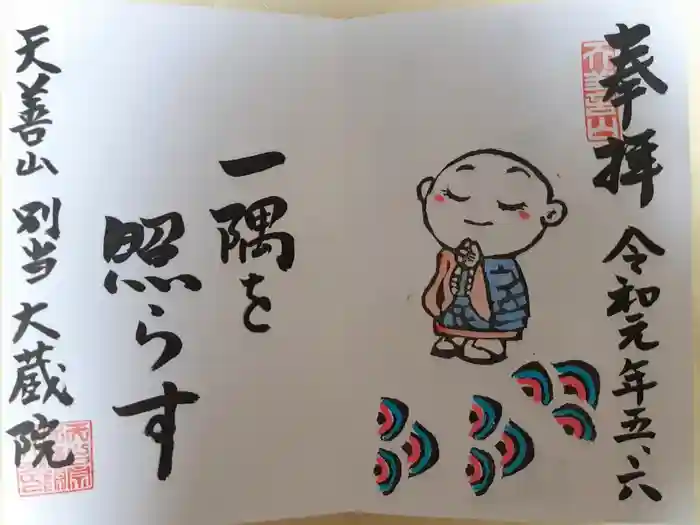 奉拝
令和元年五、六
一隅を
照らす
天善山 別当 大蔵院